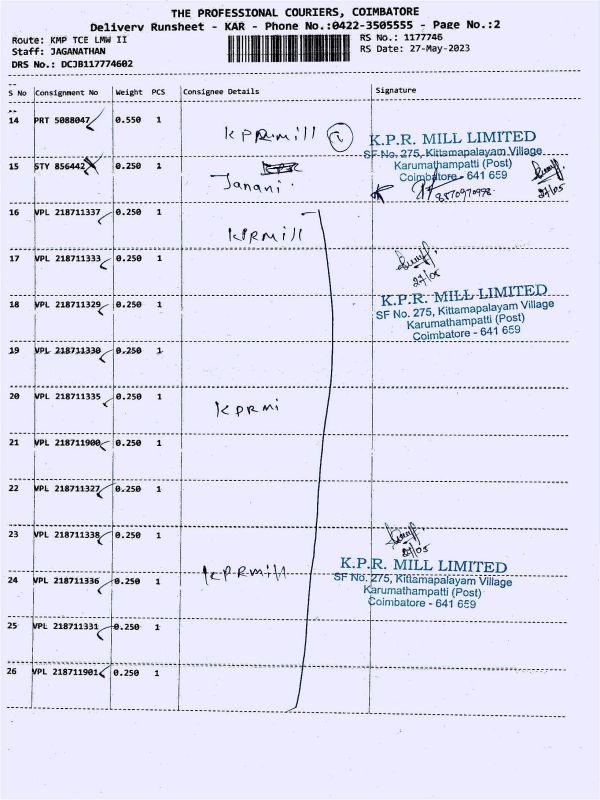 THE PROFESSIONAL COURIERS, COIMBATORE
Delivery Runsheet - KAR - Phone No.:0422-3505555 - Page No.:2
Route: KMP TCE LMW II
RS No.: 1177746
Staff: JAGANATHAN
RS Date: 27-May-2023
DRS No.: DCJB117774602
S No Consignment No Weight PCS Consignee Details Signature
14 PRT 5088047 0.550 1
KPRmill 1
K.P.R. MILL LIMITED
SF No. 275, Kittamapalayam Village
Karumathampatti (Post)
Coimbatore - 641 659
15 STY 856442 0.250 1
Janani.
27/05
16 VPL 218711337 0.250 1
KPRmill
17 VPL 218711333 0.250 1
27/05
18 VPL 218711329 0.250 1
K.P.R. MILL LIMITED
SF No. 275, Kittamapalayam Village
Karumathampatti (Post)
Coimbatore - 641 659
19 VPL 218711330 0.250 1
20 VPL 218711335 0.250 1
KPRmi
21 VPL 218711900 0.250 1
22 VPL 218711327 0.250 1
23 VPL 218711338 0.250 1
27/05
KPRmill
K.P.R. MILL LIMITED
SF No. 275, Kittamapalayam Village
Karumathampatti (Post)
Coimbatore - 641 659
24 VPL 218711336 0.250 1
25 VPL 218711331 0.250 1
26 VPL 218711901 0.250 1